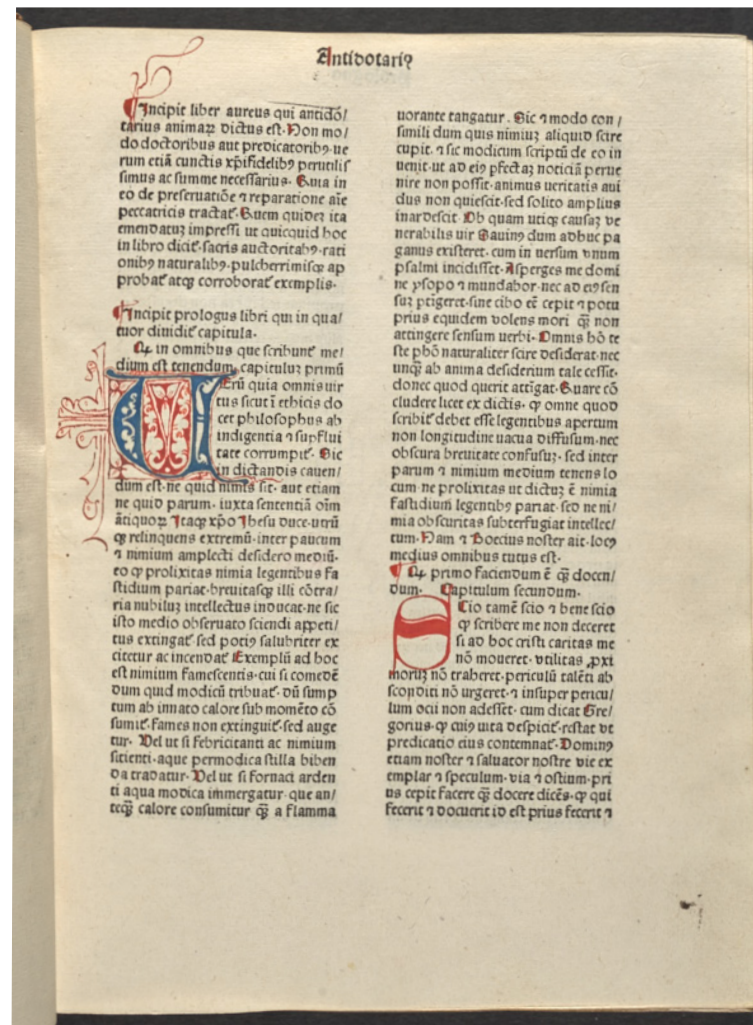 Antidotariꝰ
Incipit liber aureus qui antido/
tarius animaꝝ dictus est. Non mo/
do doctoribus aut predicatoribꝰ. ue
rum etiā cunctis xp̄ifidelibꝰ perutilis
simus ac summe necessarius. Quia in
eo de preseruatiōe ⁊ reparatione aīe
peccatricis tractat᷑. Quem quideꝫ ita
emendatuꝫ impressi ut quicquid hoc
in libro dicit᷑. sacris auctoritabꝰ. rati
onibꝰ naturalibꝰ. pulcherrimisqꝫ ap
probat᷑ atqꝫ corroborat᷑ exemplis.
Incipit prologus libri qui in qua/
tuor diuidit᷑ capitula.
Qꝙ in omnibus que scribunt᷑ me/
dium est tenendum, capituluꝫ primū
Uerū quia omnis uir
tus sicut ī ethicis do
cet philosophus ab
indigentia ⁊ supflui
tate corrumpit᷑. Sic
in dictandis cauen/
dum est. ne quid nimis sit. aut etiam
ne quid parum. iuxta sententiā oīm
ātiquoꝝ Itaqꝫ xp̄o Ihesu duce. utrū
qꝫ relinquens extremū. inter paucum
⁊ nimium amplecti desidero mediū.
eo ꝙ prolixitas nimia legentibus fa
stidium pariat. breuitasqꝫ illi cōtra/
ria nubiluꝫ intellectus inducat. ne sic
isto medio obseruato sciendi appeti/
tus extingat᷑ sed potiꝰ salubriter ex
citetur ac incendat᷑ Exemplū ad hoc
est nimium famescentis. cui si comedē
dum quid modicū tribuat᷑. dū sump
tum ab innato calore sub momēto cō
sumit᷑. fames non extinguit᷑. sed auge
tur. Vel ut si febricitanti ac nimium
sitienti. aque permodica stilla biben
da tradatur. Vel ut si fornaci arden
ti aqua modica immergatur. que an/
teqꝫ̄ calore consumitur qꝫ̄ a flamma
uorante tangatur. Sic ⁊ modo con/
simili dum quis nimiuꝫ aliquid scire
cupit. ⁊ sic modicum scriptū de eo in
uenit. ut ad eiꝰ ꝑfectaꝫ noticiā perue
nire non possit. animus ueritatis aui
dus non quiescit. sed solito amplius
inardescit. Ob quam utiqꝫ causaꝫ ve
nerabilis uir Gauinꝰ dum adhuc pa
ganus existeret. cum in uersum vnum
psalmi incidisset. Asperges me domi
ne ysopo ⁊ mundabor. nec ad eiꝰ sen
suꝫ ꝑtigeret. sine cibo eē cepit ⁊ potu
prius equidem volens mori qꝫ̄ non
attingere sensum uerbi. Omnis hō te
ste phō naturaliter scire desiderat. nec
unqꝫ̄ ab anima desiderium tale cessit.
donec quod querit attīgat. Quare cō
cludere licet ex dictis. ꝙ omne quod
scribit᷑ debet esse legentibus apertum
non longitudine uacua diffusum. nec
obscura breuitate confusuꝫ. sed inter
parum ⁊ nimium medium tenens lo
cum ne prolixitas ut dictuꝫ ē nimia
fastidiū legentibꝰ pariat. sed ne ni/
mia obscuritas subterfugiat intellec/
tum. Nam ⁊ Boecius noster ait. locꝰ
medius omnibus tutus est.
Qꝙ primo faciendum ē qꝫ̄ docen/
dum. Capitulum secundum.
Scio tamē scio ⁊ bene scio
ꝙ scribere me non deceret
si ad hoc cristi caritas me
nō moueret. vtilitas ꝓxi
moruꝫ nō traheret. periculū talēti ab
sconditi nō urgeret. ⁊ insuper pericu/
lum ocii non adesset. cum dicat Gre/
gorius. ꝙ cuiꝰ uita despicit᷑. restat vt
predicatio eius contemnat᷑. Dominꝰ
etiam noster ⁊ saluator nostre vie ex
emplar ⁊ speculum. via ⁊ ostium. pri
us cepit facere qꝫ̄ docere dicēs. ꝙ qui
fecerit ⁊ docuerit id est prius fecerit ⁊